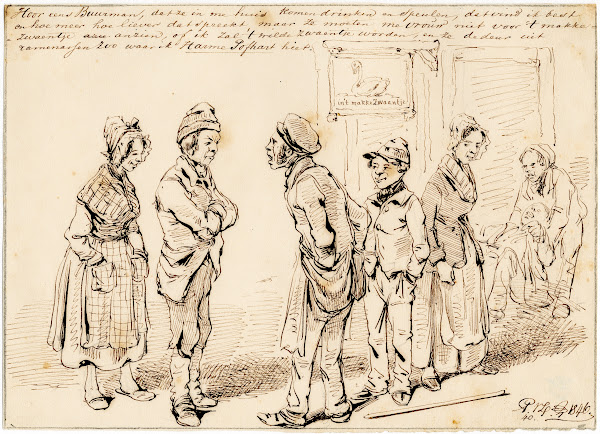 Hoor eens Buurman, dat ze in me huis komen drinken en speulen, det vind ik best
en hoe meer hoe liever dat spreekt, maar ze moeten me vrouw niet voor 't makke
zwaantje aan anzien, of ik zal 't wilde zwaantje worden, en ze de deur uit
ramenassen zoo waar ik Harme Pofhart hiet.
int makke Zwaantje